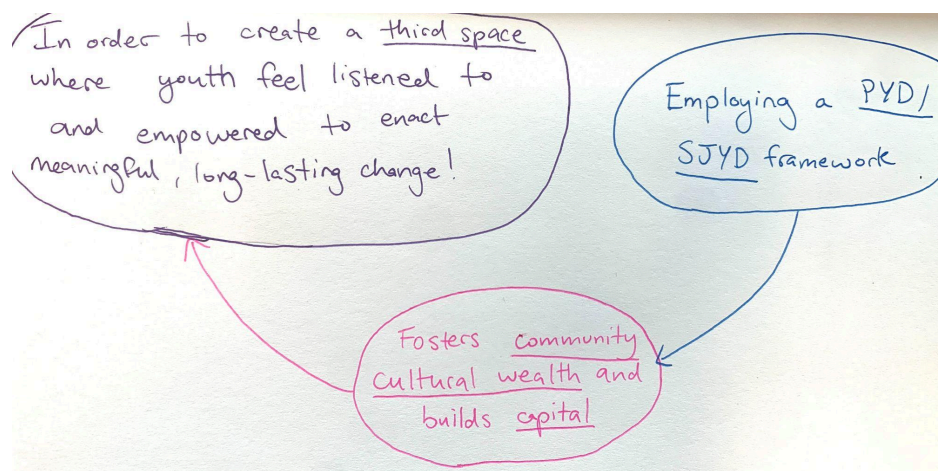 In order to create a third space
where youth feel listened to
and empowered to enact
meaningful, long-lasting change!
Employing a PYD/
SJYD framework
Fosters community
cultural wealth and
builds capital